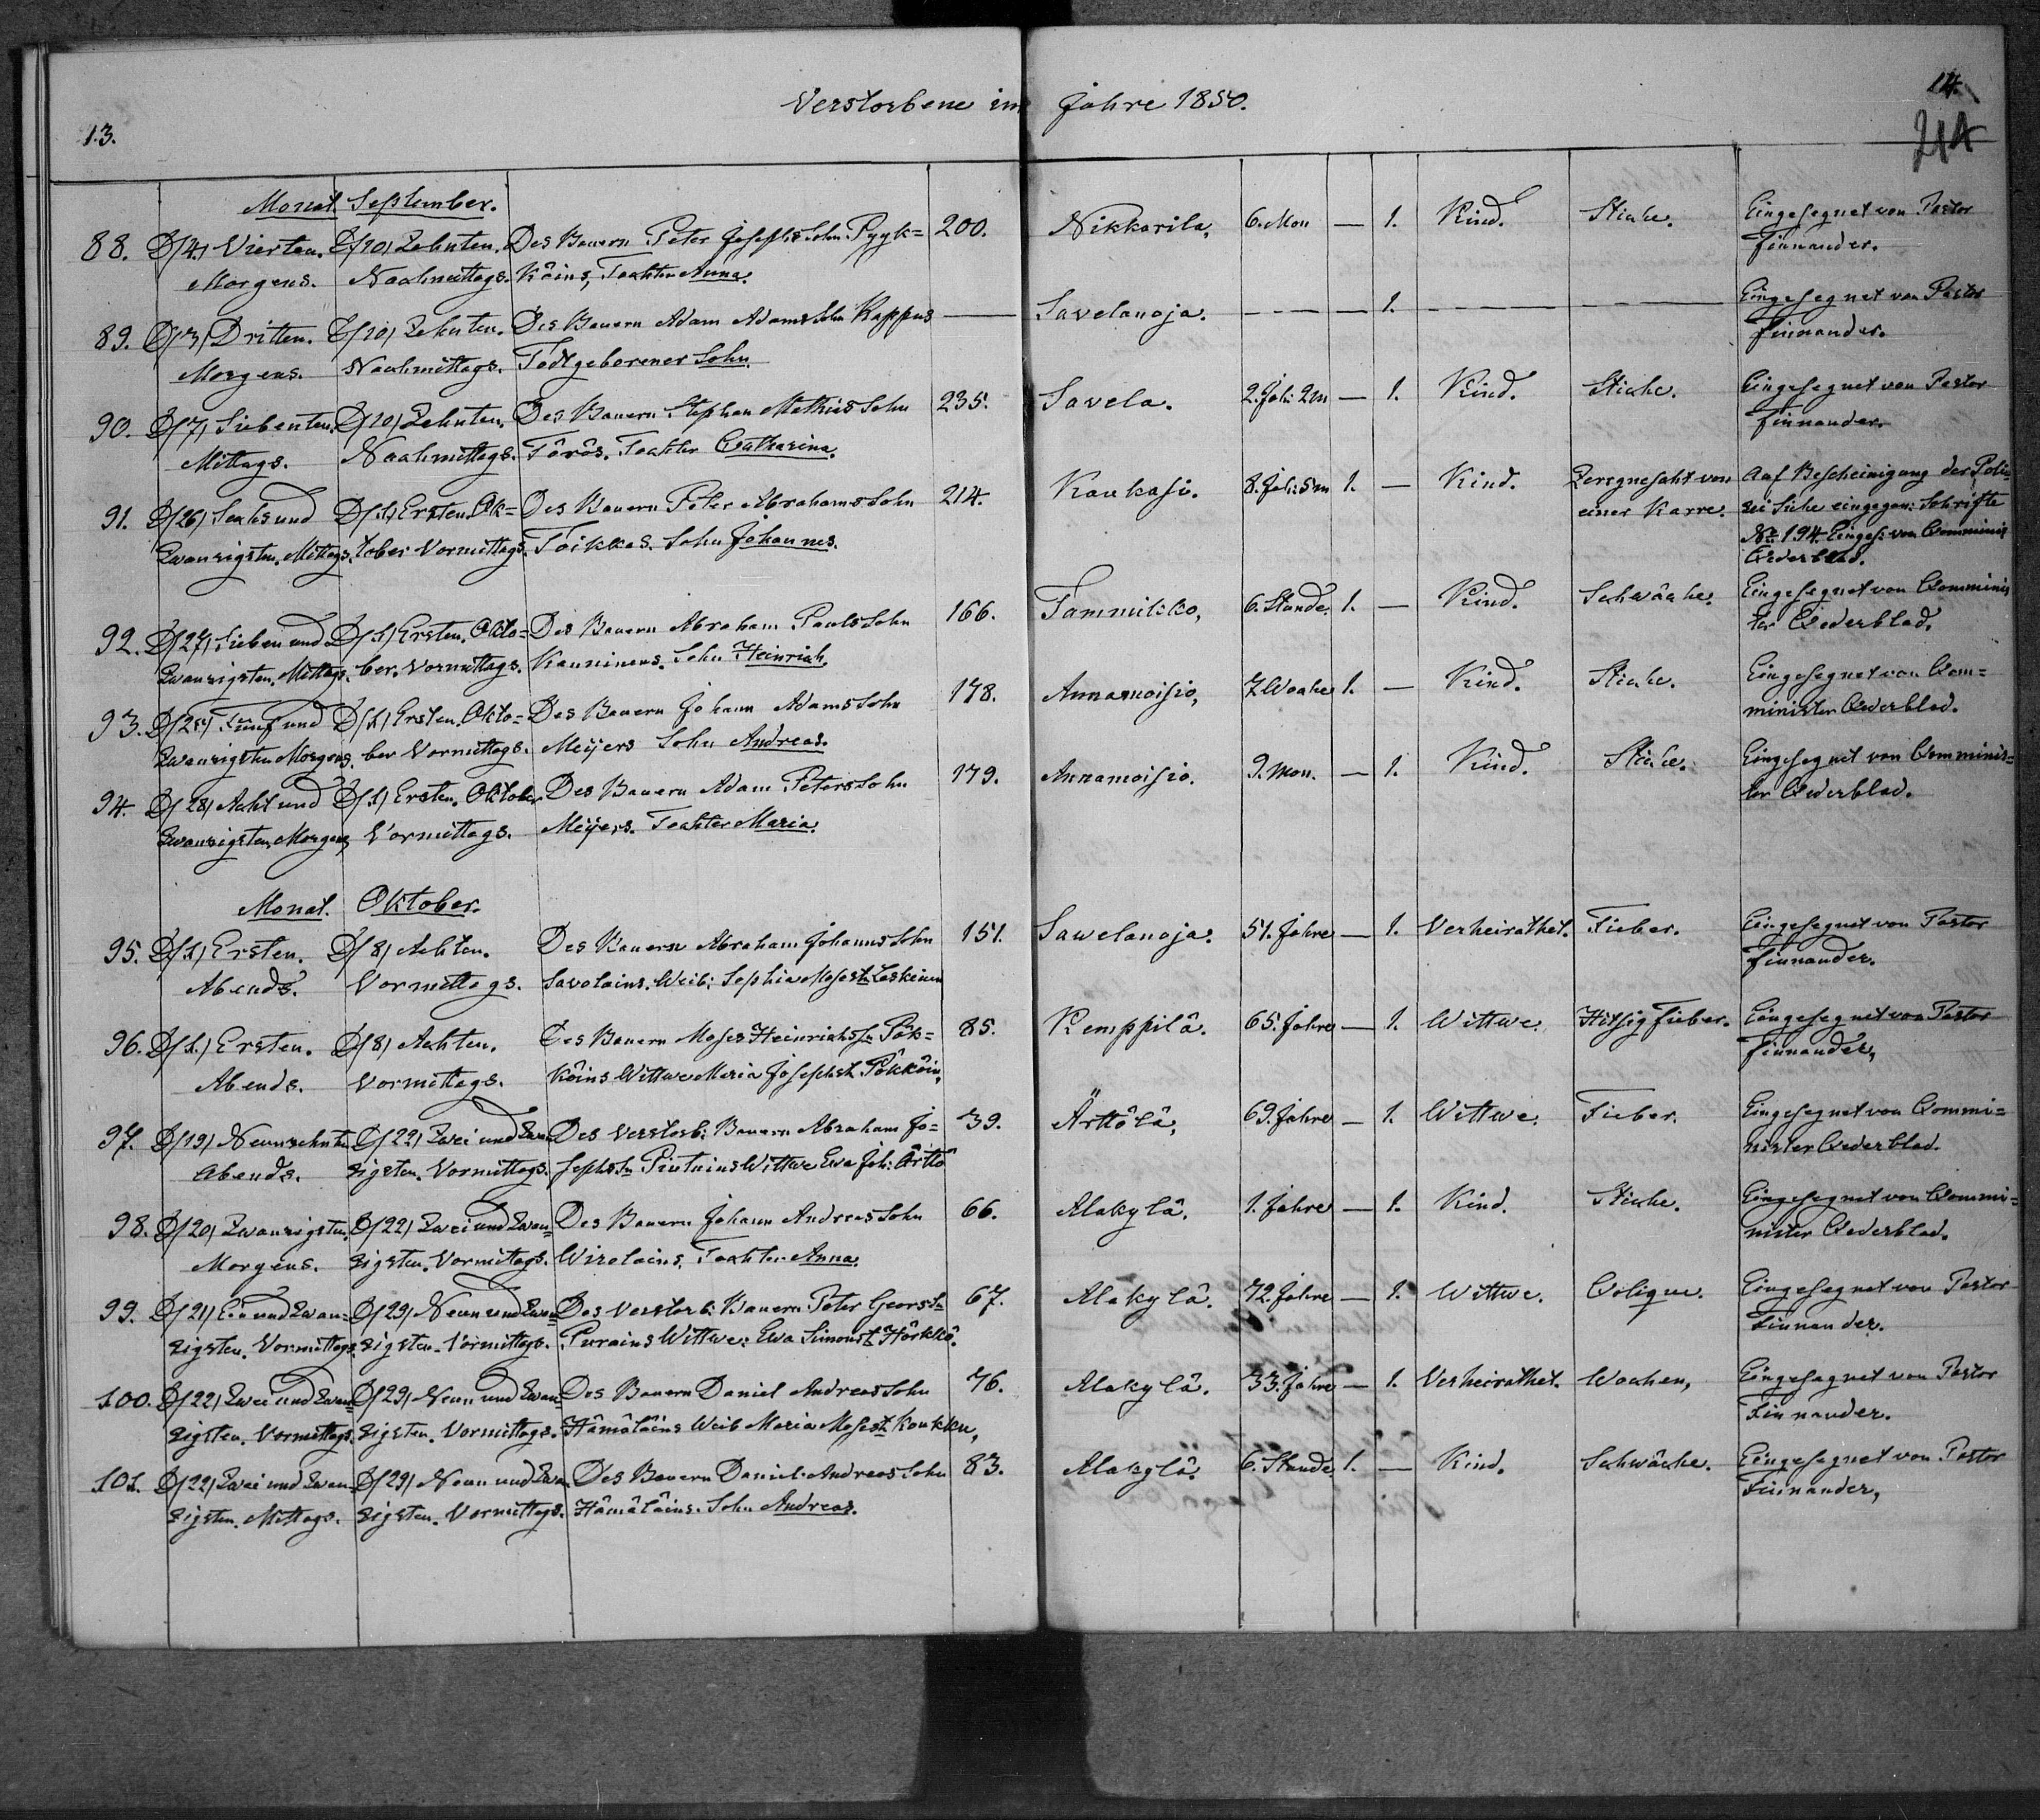 Verstorbene im Jahre 1850.
13.
14.
214
Monat September.
88. D/4,) Vierten. D/10) Zehnten. Des Bauern Peter Josephs Sohn Pyyk= 200. Nikkarila, 6. Mon — 1. Kind. Stiche. Eingesegnet von Pastor
Morgens. Nachmittags. köins, Tochter Anna. Finnander.
89. D/3) Dritten. D/10) Zehnten. Des Bauern Adam Adams Sohn Kappus — Savelanoja. — — 1. — — Eingesegnet von Pastor
Morgens. Nachmittags. Todtgeborener Sohn. Finnander.
90. D/7) Siebenten. D/10) Zehnten. Des Bauern Stephan Mathias Sohn 235. Savela. 2. Jah: 2 m — 1. Kind. Stiche. Eingesegnet von Pastor
Mittags. Nachmittags. Törös. Tochter Catharina. Finnander.
91. D/26) Sechs und D/1,) Ersten Ok= Des Bauern Peter Abrahams Sohn 214. Koukasi. 8. Jah: 5 m 1. — Kind. von Auf Bescheinigung der Poli=
Zwanzigsten. Mittags. tober Vormittags. Toikkas. Sohn Johannes. einer Karre. zei eingegan: Schrifte
No 194. Einges: von Comminis
Cederblad.
92. D/27) Sieben und D/1,) Ersten. Okto= Des Bauern Abraham Pauls Sohn 166. Tammikko, 6. Stunde. 1. — Kind. Schwäche. Eingesegnet von Comminis
Zwanzigsten. Mittags. ber. Vormittags. Kauninens. Sohn Heinrich. ter Cederblad.
93. D/25) Fünf und D/1,) Ersten. Okto= Des Bauern Johann Adams Sohn 178. Annamoisio, 7. Woche 1. — Kind. Stiche. Eingesegnet von Com=
Zwanzigsten Morgens. ber Vormittags. Meijers Sohn Andreas. minister Cederblad.
94. D/28) Acht und D/1,) Ersten. Oktober Des Bauern Adam Peters Sohn 179. Annamoisio. 9. Mon. — 1. Kind. Stiche. Eingesegnet von Comminis=
Zwanzigsten, Morgens, Vormittags. Meijers. Tochter Maria. ter Cederblad.
Monat. Oktober.
95. D/1,) Ersten. D/8) Achten. Des Bauern Abraham Johanns Sohn 151. Sawelanoja. 51. Jahre — 1. Verheirathet. Fieber. Eingesegnet von Pastor
Abends. Vormittags. Savolains. Weib: Sophia Moses t. Leskinen Finnander.
96. D/1,) Ersten. D/8) Achten. Des Bauern Moses Heinrichs Sn Pök= 85. Kemppilä. 65. Jahre — 1. Wittwe. Hitzig Fieber. Eingesegnet von Pastor
Abends. Vormittags. köins Wittwe Maria Josephs t. Pökköin, Finnander,
97. D/19) Neunzehnten D/22) Zwei und Zwan= Des Verstorb: Bauern Abraham Jo= 39. Ärttölä, 69. Jahre — 1. Wittwe. Fieber. Eingesegnet von Commi=
Abends. zigsten. Vormittags. sephs Sn Wittwe Ewa Joh: Ärttö nister Cederblad.
98. D/20) Zwanzigsten. D/22) Zwei und Zwan= Des Bauern Johann Andreas Sohn 66. Alakylä. 1. Jahre — 1. Kind. Stiche. Eingesegnet von Commi=
Morgens. zigsten. Vormittags. Wirolains. Tochter Anna. nister Cederblad.
99. D/21) Ein und Zwan= D/29) Neun und Zwan= Des Verstorb: Bauern Peter Georgs Sn 67. Alakylä. 72. Jahre — 1. Wittwe. Colique. Eingesegnet von Pastor
zigsten. Vormittags. zigsten. Vormittags. Purains Wittwe: Ewa Simons t. Härkkö. Finnander.
100. D/22) Zwei und Zwan= D/29) Neun und Zwan= Des Bauern Daniel Andreas Sohn 76. Alakylä. 33. Jahre — 1. Verheirathet. Wochen, Eingesegnet von Pastor
zigsten. Vormittags. zigsten. Vormittags. Hämäläins Weib Maria Moses t. Koukku, Finnander.
101. D/22) Zwei und Zwan= D/29) Neun und Zwan Des Bauern Daniel Andreas Sohn 83. Alakylä. 6. Stunde. 1. — Kind. Schwäche. Eingesegnet von Pastor
zigsten. Mittags. zigsten. Vormittags. Hämäläins. Sohn Andreas. Finnander,